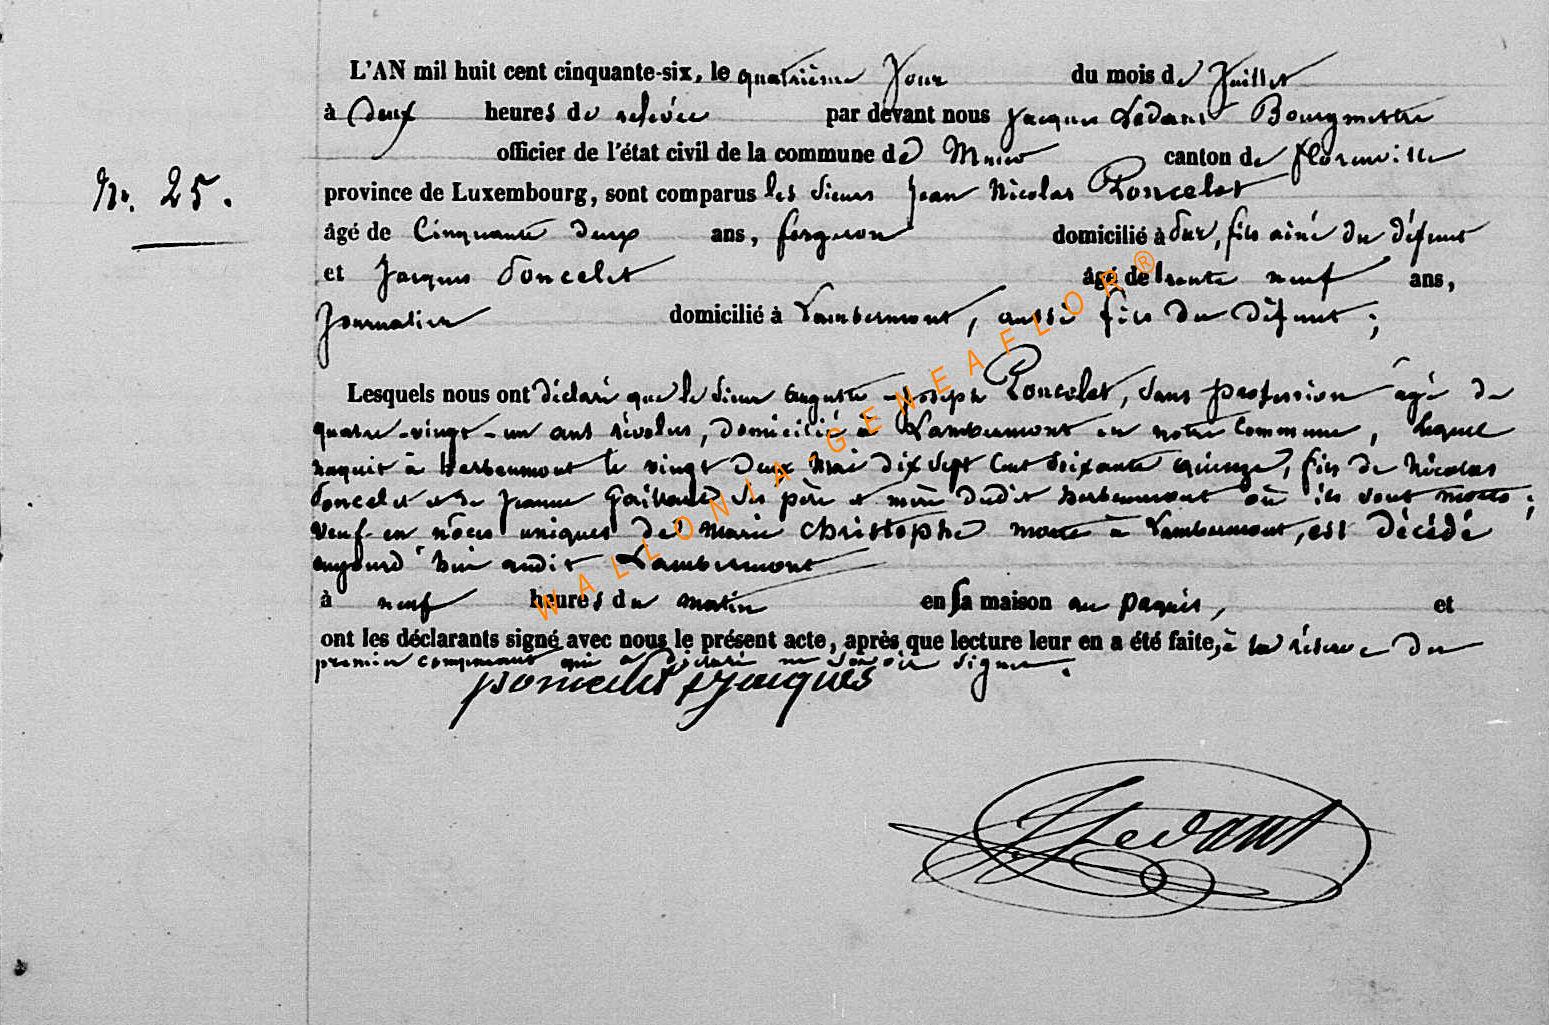 L'AN mil huit cent cinquante-six, le quatrième Jour du mois de Juillet
à deux heures de relevée par devant nous Jacques Ledant Bourgmestre
officier de l'état civil de la commune de Muno canton de florenville
N°. 25.
province de Luxembourg, sont comparus les sieurs Jean Nicolas Poncelet
âgé de Cinquante deux ans, forgeron domicilié à fils ainé du défunt
et Jacques Poncelet âgé de trente neuf ans,
Journalier domicilié à Lambermont, aussi fils du défunt;
Lesquels nous ont déclaré que le sieur auguste Joseph Poncelet, sans profession âgé de
quatre-vingt-un ans révolus, domicilié à Lambermont en notre Commune, lequel
naquit à herbeumont le vingt deux Mai dix sept Cent soixante quinze, fils de Nicolas
Poncelet et de Jeanne ses père et mère dudit herbeumont où ils sont morts;
veuf en nôces uniques de Marie Christophe morte à Lambermont, est décédé
aujourd'hui audit Lambermont
à neuf heures du matin en sa maison au paquis, et
ont les déclarants signé avec nous le présent acte, après que lecture leur en a été faite, à la réserve du
premier comparant qui a déclaré ne savoir signer.
poncelet Jacques
JLedant
WALLONIA-GENEAFLOR®